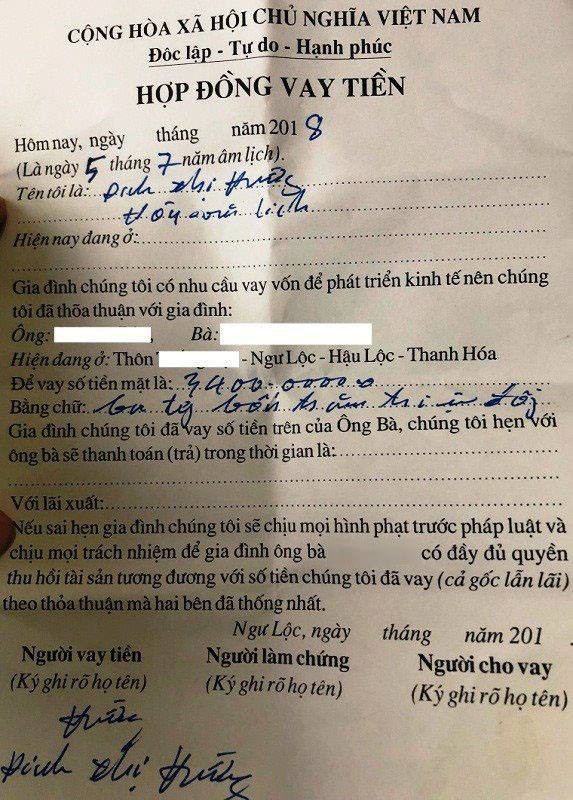 CỘNG HÒA XÃ HỘI CHỦ NGHĨA VIỆT NAM
Độc lập - Tự do - Hạnh phúc
HỢP ĐỒNG VAY TIỀN
Hôm nay, ngày tháng năm 2018
(Là ngày 5 tháng 7 năm âm lịch).
Tên tôi là: Đinh thị
Hiện nay đang ở:
Gia đình chúng tôi có nhu cầu vay vốn để phát triển kinh tế nên chúng
tôi đã thõa thuận với gia đình:
Ông: , Bà:
Hiện đang ở: Thôn - Ngư Lộc - Hậu Lộc - Thanh Hóa
Để vay số tiền mặt là: 3400.0000.0
Bằng chữ: ba tỷ bốn trăm triệu đồng
Gia đình chúng tôi đã vay số tiền trên của Ông Bà, chúng tôi hẹn với
ông bà sẽ thanh toán (trả) trong thời gian là:
Với lãi xuất:
Nếu sai hẹn gia đình chúng tôi sẽ chịu mọi hình phạt trước pháp luật và
chịu mọi trách nhiệm để gia đình ông bà có đầy đủ quyền
thu hồi tài sản tương đương với số tiền chúng tôi đã vay (cả gốc lẫn lãi)
theo thỏa thuận mà hai bên đã thống nhất.
Ngư Lộc, ngày tháng năm 201
Người vay tiền Người làm chứng Người cho vay
(Ký ghi rõ họ tên) (Ký ghi rõ họ tên) (Ký ghi rõ họ tên)
Đinh thị